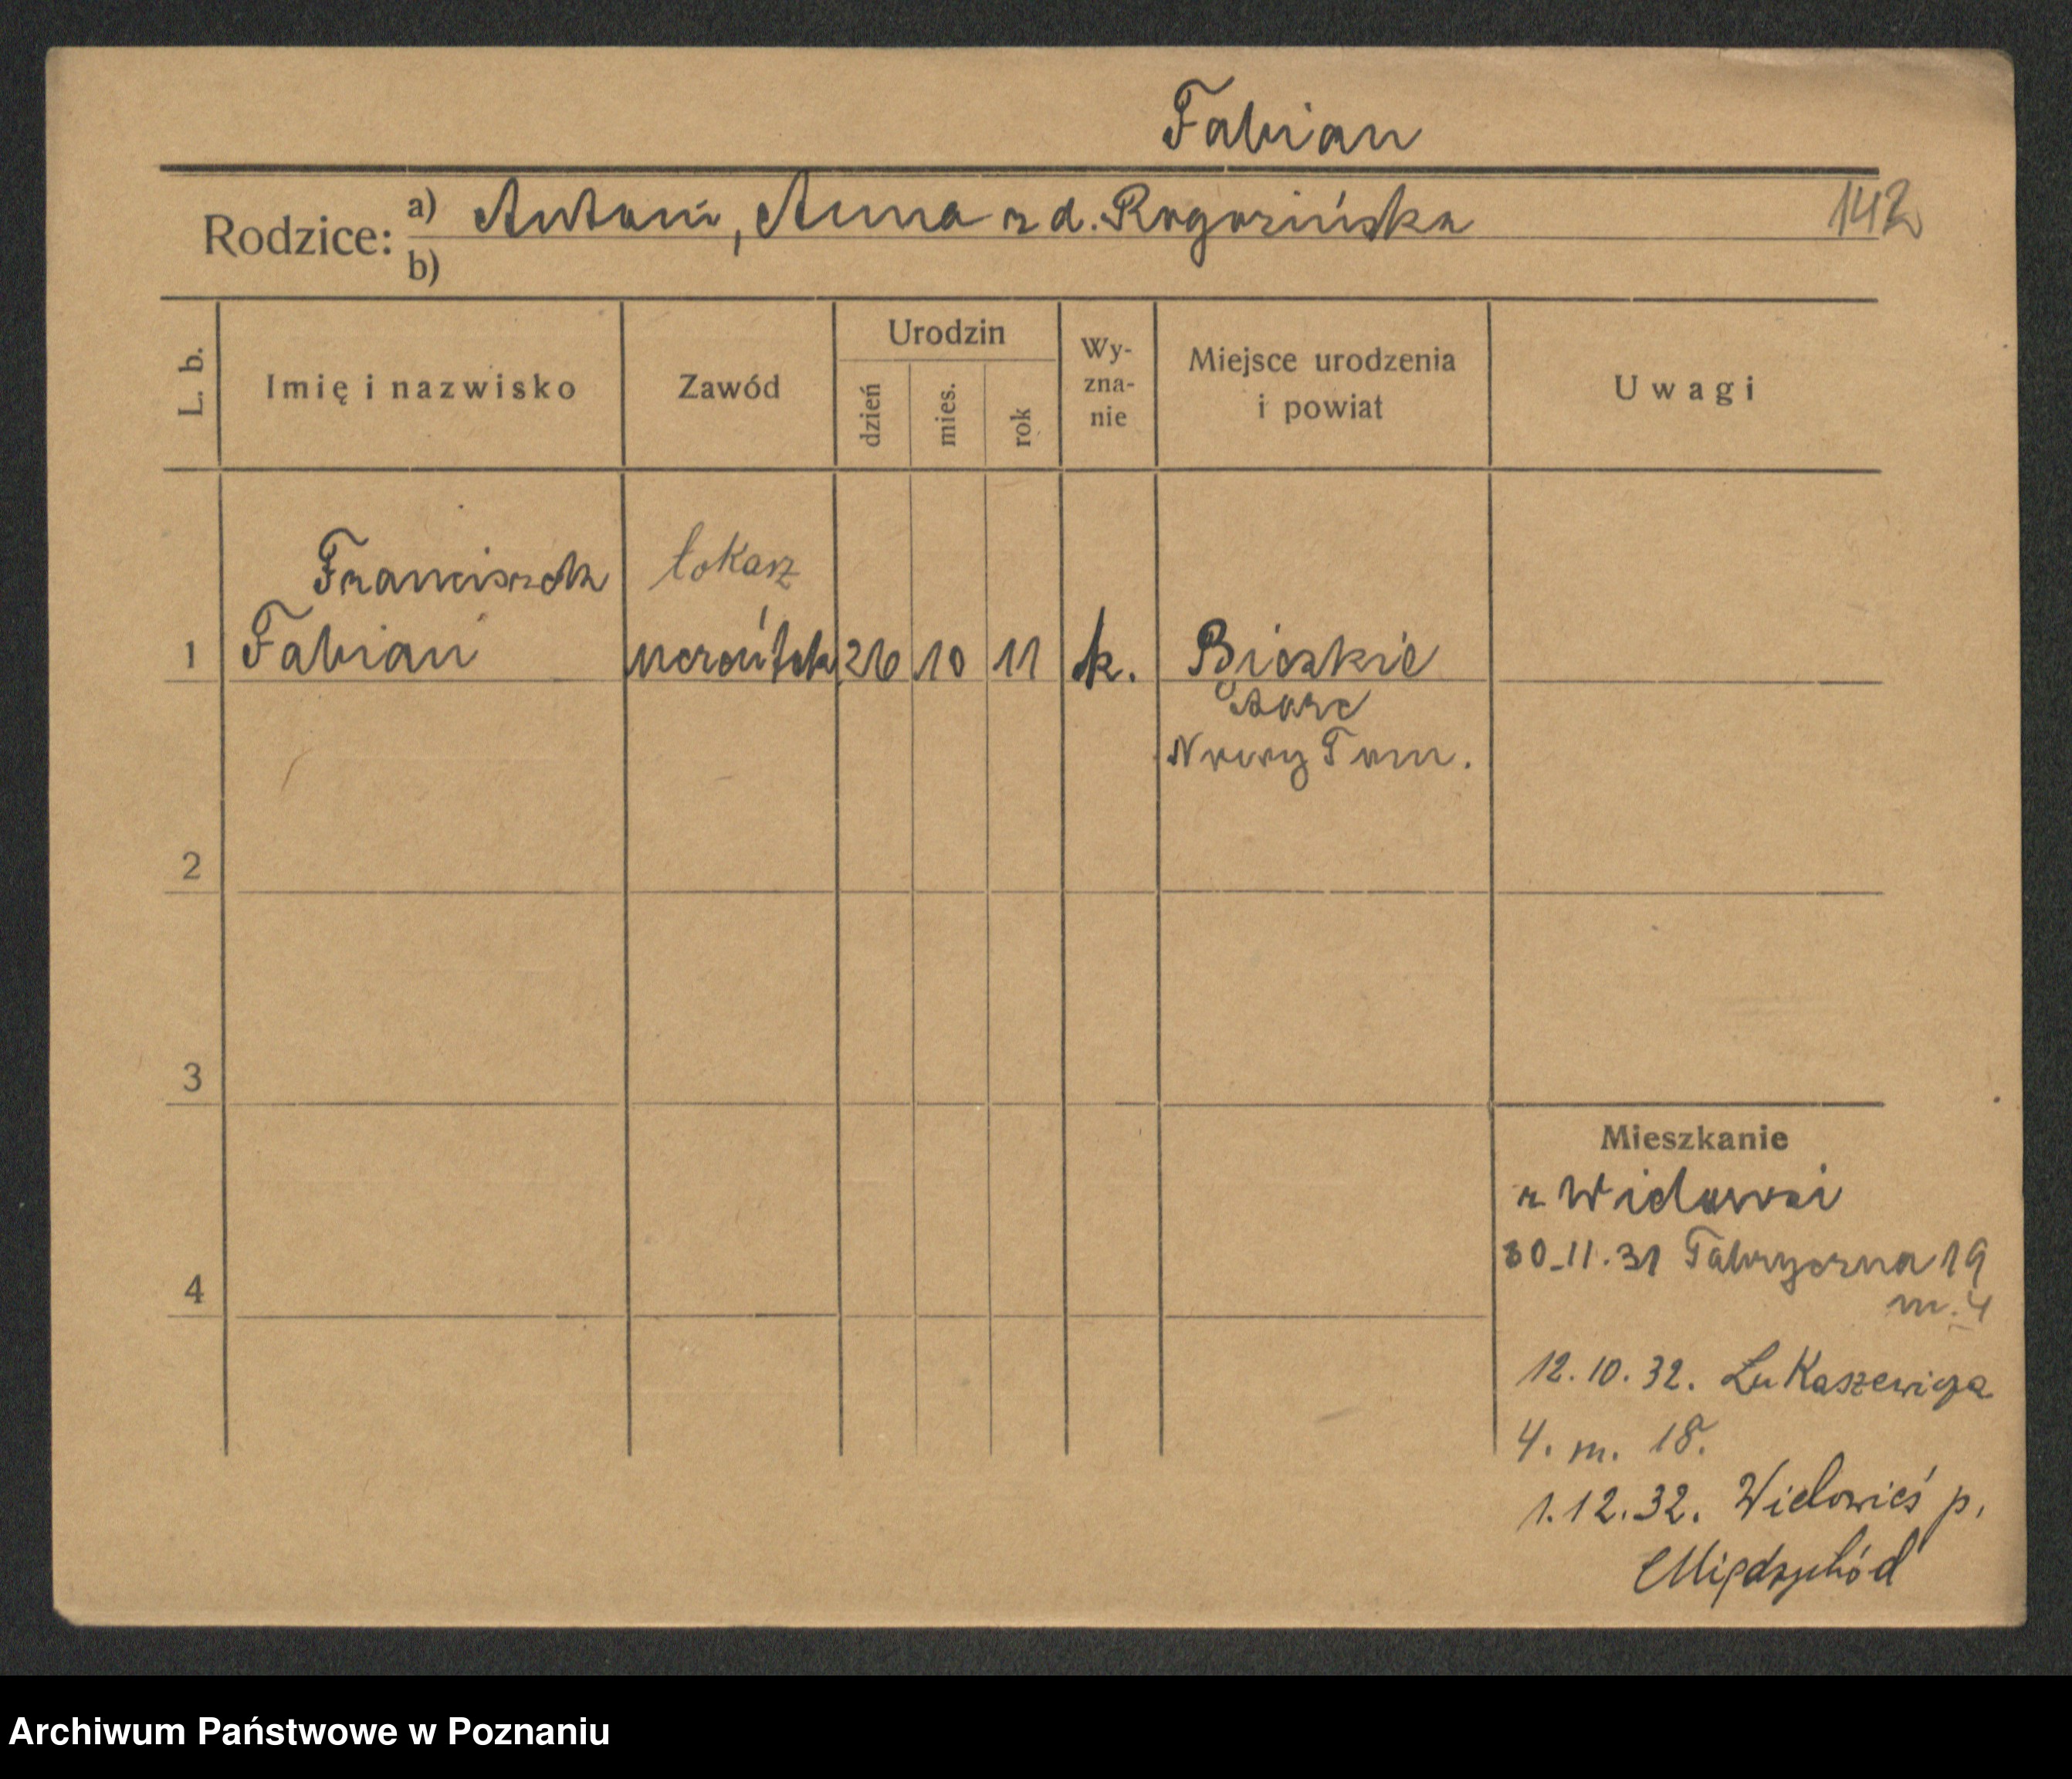 Fabian
Rodzice: a) Antoni, Anna z d. Rogozińska 142
b)
L. b. Imię i nazwisko Zawód Urodzin dzień mies. rok Wy-zna-nie Miejsce urodzenia i powiat Uwagi
Franciszek
1 Fabian uczeń 26 10 11 k.
Stare
Nowy Tom.
2
3
Mieszkanie
z Widawai
4 30.11.31 Fabryczna 19
m. 4
12.10.32. Łukaszewicza
4. m. 18.
1.12.32. Wielowieś p.
Międzychód
Archiwum Państwowe w Poznaniu